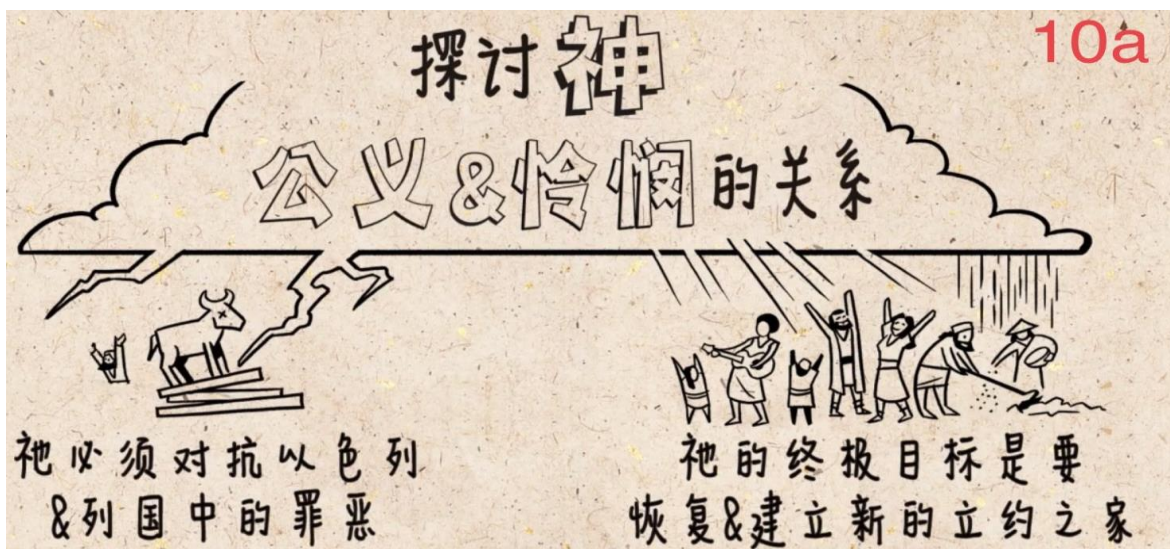 10a
探讨神
公义&怜悯的关系
祂必须对抗以色列
&列国中的罪恶
祂的终极目标是要
恢复&建立新的立约之家